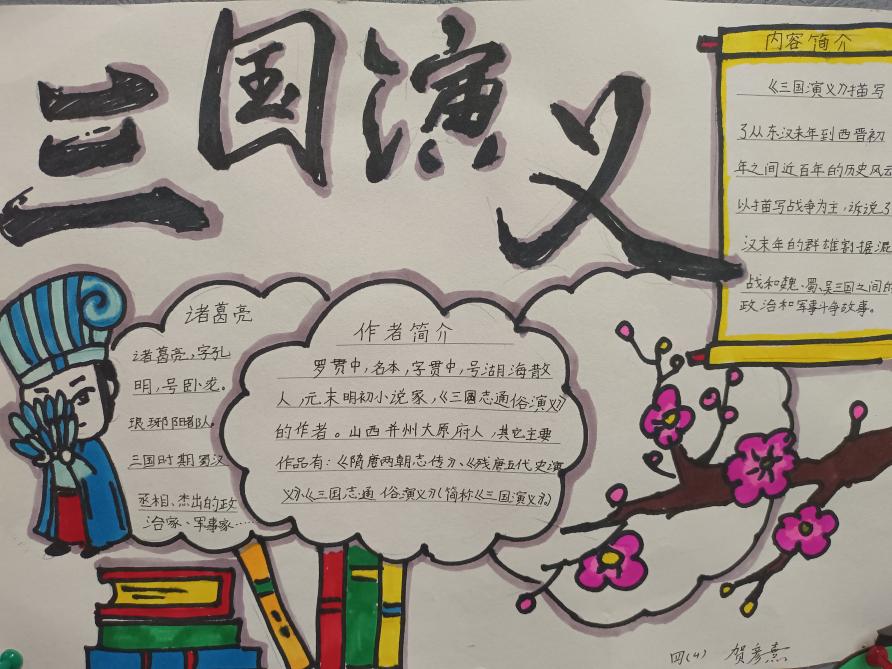 三国演义
内容简介
《三国演义》描写
了从东汉末年到西晋初
年之间近百年的历史风云
以描写战争为主,诉说了
汉末年的群雄割据混
战和魏、蜀、吴三国之间的
政治和军事斗争故事。
诸葛亮
诸葛亮,字孔
明,号卧龙。
琅琊阳都人
三国时期蜀汉
丞相、杰出的政
治家、军事家……
作者简介
罗贯中,名本,字贯中,号湖海散
人,元末明初小说家,《三国志通俗演义》
的作者。山西并州太原府人,其它主要
作品有:《隋唐两朝志传》、《残唐五代史演
义》、《三国志通俗演义》(简称《三国演义》)
四(4) 贺彦熹